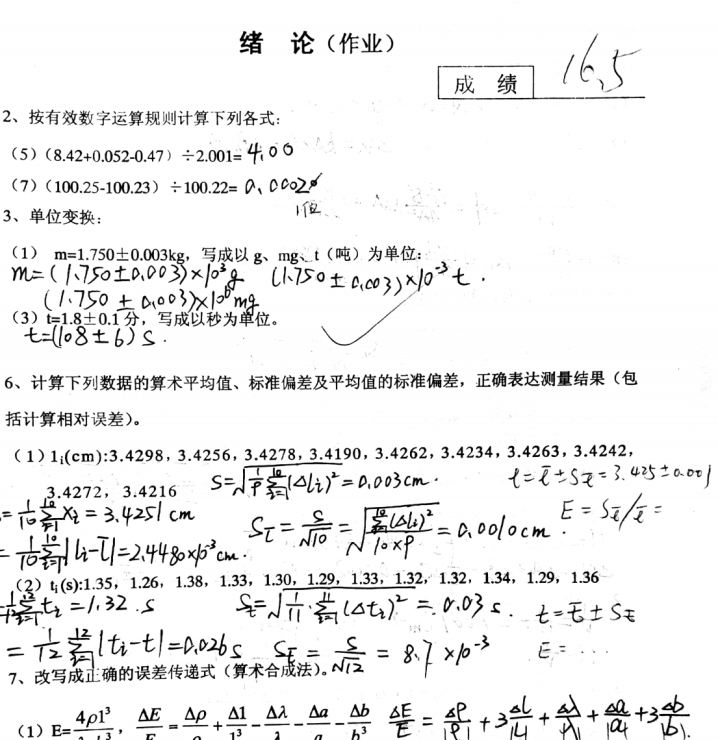 绪 论（作业）
成 绩 16.5
2、按有效数字运算规则计算下列各式：
（5）（8.42+0.052-0.47）÷2.001= 4.00
（7）（100.25-100.23）÷100.22= 0.0002
1位
3、单位变换：
（1） m=1.750±0.003kg，写成以 g、mg、t（吨）为单位：
m=(1.750±0.003)×10³g (1.750±0.003)×10⁻³ t .
(1.750±0.003)×10⁶mg
（3）t=1.8±0.1 分，写成以秒为单位。
t=(108±6) s .
6、计算下列数据的算术平均值、标准偏差及平均值的标准偏差，正确表达测量结果（包
括计算相对误差）。
（1）l_i(cm):3.4298，3.4256，3.4278，3.4190，3.4262，3.4234，3.4263，3.4242，
3.4272，3.4216 S=√(1/9 Σ_{i=1}^{10}(Δl_i)²)=0.003cm. l=l̄±S_l̄=3.425±0.001
=1/10 Σ_{i=1}^{10} x_i = 3.4251 cm S_l̄ = S/√10 = √(Σ_{i=1}^{10}(Δl_i)²/(10×9)) = 0.0010cm. E=S_l̄/l̄=
=1/10 Σ_{i=1}^{10}|l_i-l̄|=2.4480×10⁻³cm.
（2）t_i(s):1.35，1.26，1.38，1.33，1.30，1.29，1.33，1.32，1.32，1.34，1.29，1.36
1/12 Σ_{i=1}^{12} t_i =1.32 .s S_t=√(1/11 · Σ_{i=1}(Δt_i)²) = 0.03 s. t=t̄±S_t̄
=1/12 Σ_{i=1}^{12}|t_i-t|=0.026 s S_t̄ = S/√12 = 8.7×10⁻³ E=...
7、改写成正确的误差传递式（算术合成法）。
（1）E=4ρl³ ， ΔE/E = Δρ/ρ + Δl/l³ - Δλ/λ - Δa/a - Δb/b³ ΔE/E = Δρ/|ρ| + 3Δl/|l| + Δλ/|λ| + Δa/|a| + 3Δb/|b|.